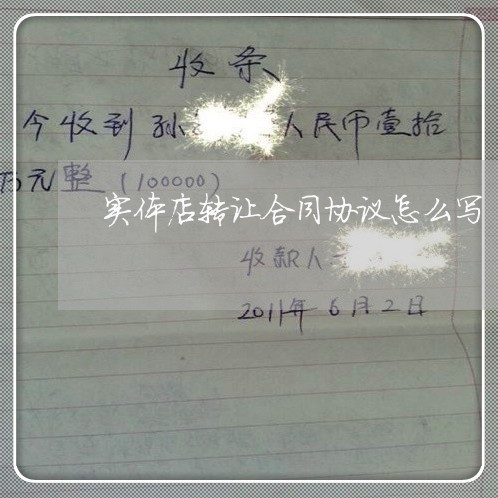 收条
今收到孙 人民币壹拾
万元整(100000)
实体店转让合同协议怎么写
收款人
2011年6月2日